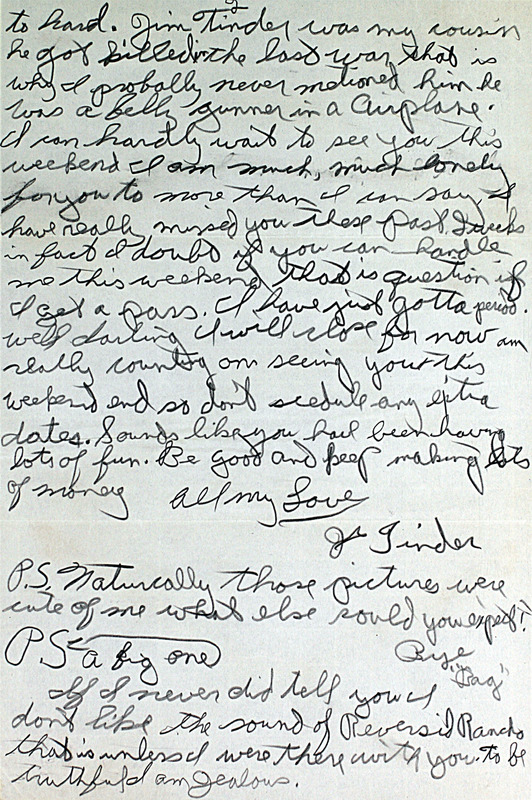 2
to hard. Jim Tinder was my cousin
he got killed in the last war, that is
why I probally never metioned him he
was a belly gunner in a Airplane.
I can hardly wait to see you this
weekend I am much, much lonely
for you to more than I can say, I
have really missed you these past 2 weeks
in fact I doubt if you can handle
me this weekend, that is question if
I get a pass. I have just gotta period.
well darling I will close for now am
really counting on seeing you this
weekend end so don't scedule any extra
dates. Sounds like you had been having
lots of fun. Be good and keep making lots
of money All my Love
Tinder
P.S. Naturcally those pictures were
cute of me what else sould you expect!
P.S. a big one Bye
"Bag"
If I never did tell you I
don't like the sound of Reversid Rancho
that is unless I were there with you. to be
truthful I am Jealous.